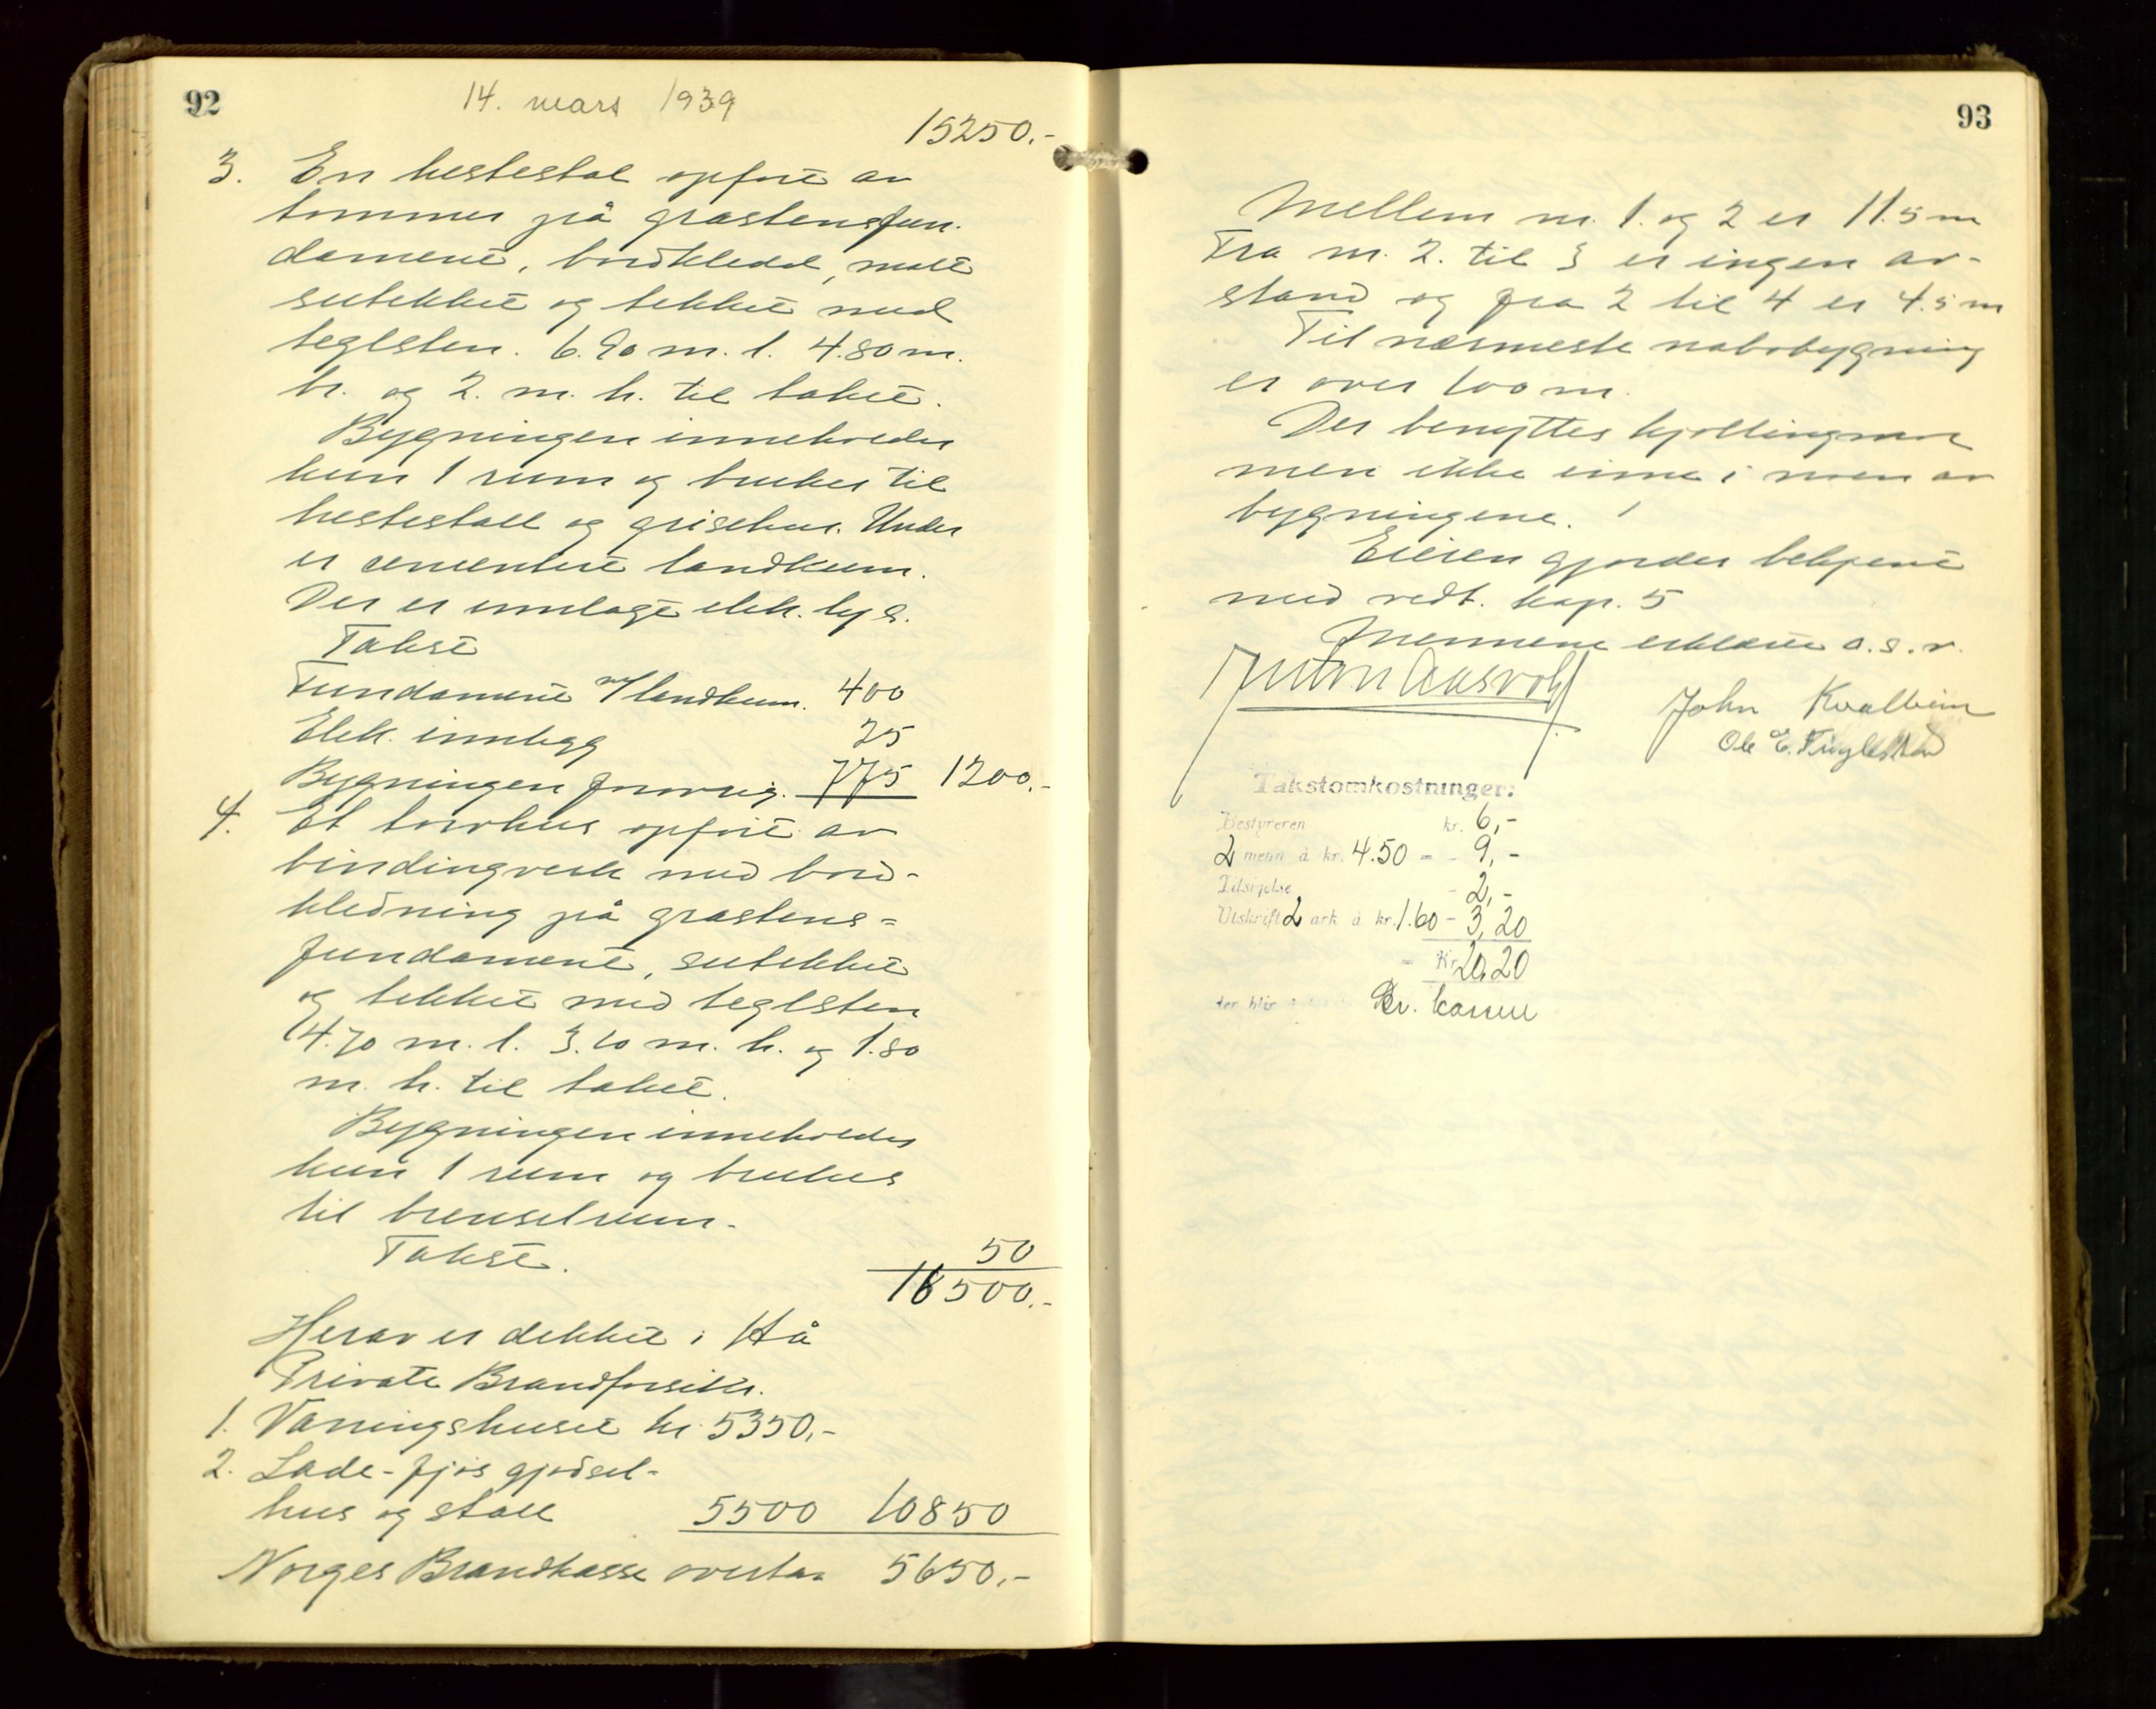 92
14. mars 1939
15250.-
3. En hestestal opført av
tømmer på gråstensfun-
dament, bordkledd, malt
sutekket og tekket med
teglsten. 6.90 m. l. 4.80 m.
br. og 2. m. h. til taket.
Bygningen inneholder
kun 1 rum og brukes til
hestestall og grisehus. Under
er cementert landkum.
Der er innlagt elek. lys.
Takst
Fundament m/landkum. 400
Elek. innlegg 25
Bygningen forøvrig. 775 1200.-
4. Et torvhus opført av
bindingverk med bord-
kledning på gråstens-
fundament, sutekket
og tekket med teglsten
4.70 m. l. 3.10 m. br. og 1.80
m. h. til taket.
Bygningen inneholder
kun 1 rum og brukes
til brenselrum.
Takst. 50
16500.-
Herav er dekket i Hå
Private Brandforsikr.
1. Våningshuset kr 5350,-
2. Lade-fjøs gjødsel-
hus og stall 5500 10850
Norges Brandkasse overtar 5650,-
93
Mellem nr. 1. og 2 er 11.5 m
Fra nr. 2. til 3 er ingen av-
stand og fra 2 til 4 er 4.5 m
Til nærmeste nabobygning
er over 100 m.
Der benyttes
men ikke inne i noen av
bygningene.
Eieren gjordes bekjent
med vedt. kap. 5
Mennene erklærte a.s.v.
John Kvalheim
Ole E. Fuglestad
Takstomkostninger:
Bestyreren kr. 6,-
2 menn à kr. 4.50 = - 9,-
Tilsigelse - 2,-
Utskrift 2 ark à kr. 1.60 - 3,20
= Kr. 20,20
der blir